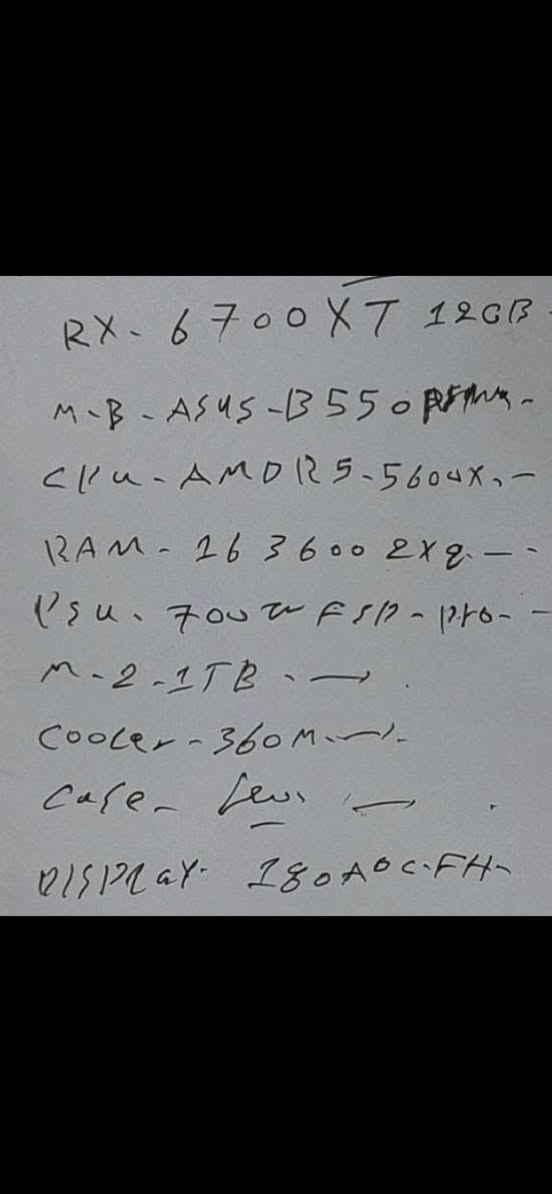 RX- 6700XT 12GB-
M-B-ASUS-B550
CPU-AMD R5-5600X.-
RAM-16 3600 2x8.--
PSU. 700W FSP-Pro--
M-2-1TB.→.
Cooler-360M.→.
Case- →.
DISPLAY. 180 AOC.FH-